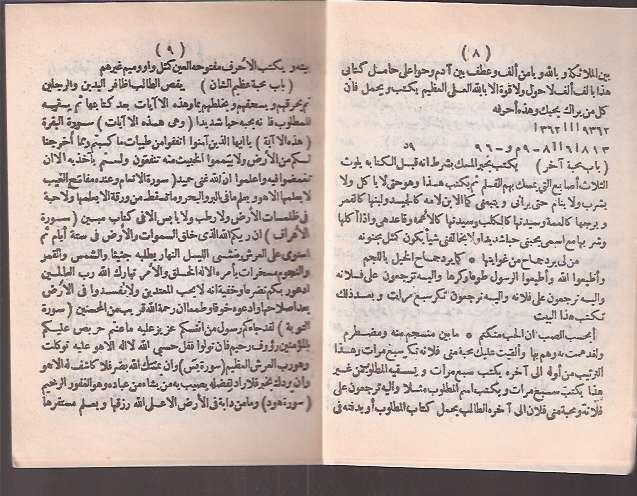 ( ٨ )
بين الملائكة و بالله ويا من ألف وعطف بين آدم وحوا على حامل كتابي
هذا بألف ألف لا حول ولا قوة الا بالله العلي العظيم يكتب ويحمل فان
كل من يراك يحبك وهذه أحرفه
٩٣٦٢ ١١١ ١٣٦٢
( باب محبة آخر ) يكتب بحبر المسك بشرط انه قبل الكتابه يلوث
الثلاث أصابع التي يمسك بهم القلم ثم يكتب هذا وهو حتى لا يأكل ولا
يشرب ولا ينام حتى يراني و يتبعني كما الابن لامه كالميسد ولبنها كالقمر
و برجها كالعمة وسيدتها كالكلب وسيدتها كالائحمه وقاعدهى واذا أكلها
وشر بها مع اسمى يحبنى حبا شديدا ولا يخالفنى شيأ يكون كمثل مجنونه
من لى برد جماح من غوايتها * كما يرد جماح الخيل باللجم
وأطيعوا الله وأطيعوا الرسول طوعا وكرها واليه ترجعون على فلانه
واليه ترجعون على فلانه واليه ترجعون تكرر سبع مرات و بعد ذلك
تكتب هذا البيت
أيحسب الصب ان الحب منكتم * ما بين منسجم منه ومضطرم
ولقد همت به وهم بها وألقيت عليك محبة منى فلانه تكرر سبع مرات وهذا
الترتيب من أوله الى آخره يكتب سبع مرات و يسقيه المطلوب من غير
هذا يكتب سبع مرات و يكتب اسم المطلوب مثلا واليه ترجعون على
فلانة ومحبة منى فلان الى آخره الطالب يحمل كتاب المطلوب أو يدفنه فى
( ٩ )
بيته و يكتب الاحرف مفتوحه العين كمثل واو وميم غيرهم
( باب محبة عظيم الشان ) يقص الطالب اظافر اليدين والرجلين
ثم يحرقهم ويسحقهم ويخلطهم بماء وهذه الآيات بعد كتابتها ثم يسقيهم
المطلوب فانه يحبه حبا شديدا ( وهى هذه الآيات ) سورة البقرة
( هذه الآية ) يا ايها الذين آمنوا انفقوا من طيبات ما كسبتم ومما أخرجنا
لكم من الأرض ولا تيمموا الخبيث منه تنفقون ولستم بآخذيه الا ان
تغمضوا فيه واعلموا ان الله غنى حميد ( سورة الانعام وعنده مفاتح الغيب
لا يعلمها الا هو ويعلم ما فى البر والبحر وما تسقط من ورقة الا يعلمها ولا حبة
فى ظلمات الارض ولا رطب ولا يابس الا فى كتاب مبين ( سورة
الأعراف ) ان ربكم الله الذى خلق السموات والأرض فى ستة أيام ثم
استوى على العرش يغشى الليل النهار يطلبه حثيثا والشمس والقمر
والنجوم مسخرات بأمره الا له الخلق والأمر تبارك الله رب العالمين
ادعوا ربكم تضرعا وخفية انه لا يحب المعتدين ولا تفسدوا فى الأرض
بعد اصلاحها وادعوه خوفا وطمعا ان رحمة الله قريب من المحسنين ( سورة
التوبة ) لقد جاءكم رسول من انفسكم عزيز عليه ما عنتم حريص عليكم
بالمؤمنين رؤوف رحيم فان تولوا فقل حسبى الله لا اله الا هو عليه توكلت
وهو رب العرش العظيم ( سورة يونس ) وان يمسسك الله بضر فلا كاشف له الا هو
وان يردك بخير فلا راد لفضله يصيب به من يشاء من عباده وهو الغفور الرحيم
( سورة هود ) وما من دابة فى الأرض الا على الله رزقها و يعلم مستقرها